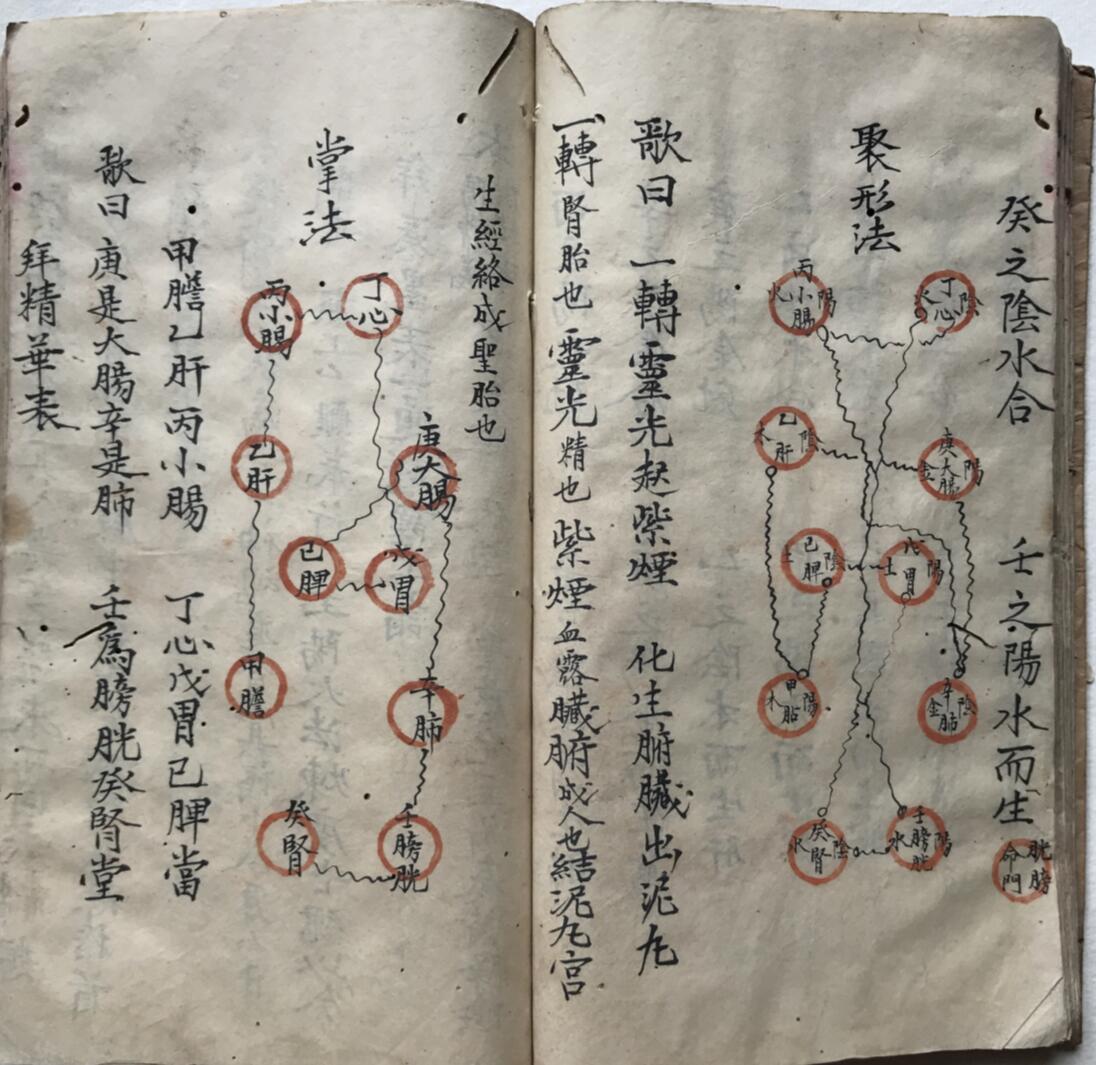 癸之陰水合 壬之陽水而生
膀胱
命門
聚形法
丁心 陰火
丙小腸 陽火
庚大腸 陽金
乙肝 陰木
戊胃 陽土
己脾 陰土
辛肺 陰金
甲胆 陽木
壬膀胱 陽水
癸腎 陰水
歌曰 一轉靈光起紫煙 化生腑臟出泥丸
一轉腎胎也靈光精也紫煙血露臟腑成人也結泥丸宮
生經絡成聖胎也
掌法
丁心
丙小腸
庚大腸
乙肝
戊胃
己脾
辛肺
甲膽
壬膀胱
癸腎
甲膽乙肝丙小腸 丁心戊胃己脾當
歌曰 庚是大腸辛是肺 壬為膀胱癸腎堂
拜精華表